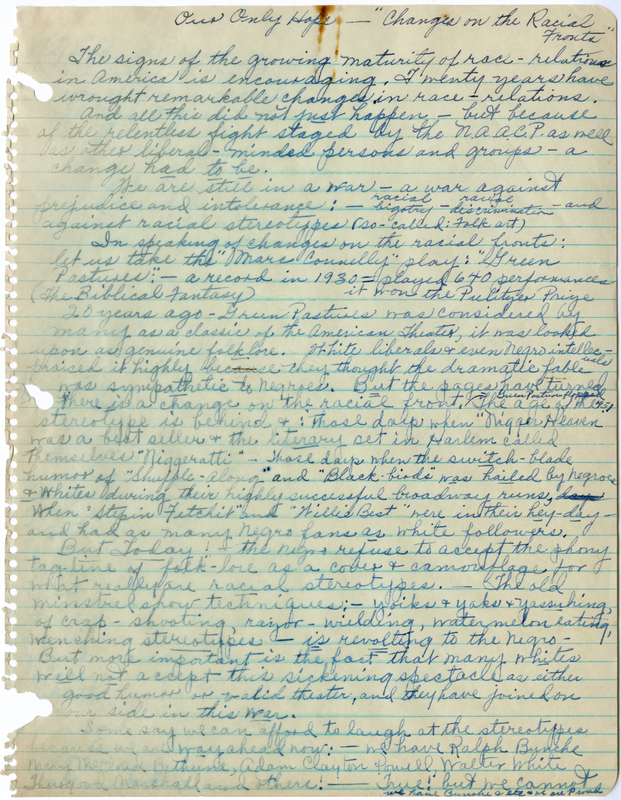 Our Only Hope — "Changes on the Racial
Fronts"
The signs of the growing maturity of race-relations
in America is encouraging. Twenty years have
wrought remarkable changes in race-relations.
And all this did not just happen — but because
of the relentless fight staged by the N.A.A.C.P as well
as other liberal-minded persons and groups — a
change had to be.
We are still in a war — a war against
racial
prejudice and intolerance: — bigotry — discrimination — and
against racial stereotypes (so-called: Folk art)
In speaking of changes on the racial fronts:
let us take the "Marc Connelly" play: "Green
Pastures": — a record in 1930 = played 640 performances
(The Biblical Fantasy) it won the Pulitzer Prize
20 years ago — Green Pastures was considered by
many as a classic of the American Theater, it was looked
upon as genuine folklore. White liberals & even Negro intellec-
uals
praised it highly because they thought the dramatic fable
was sympathetic to Negroes. But the pages have turned
Green Pastures flopped
There is a change on the racial front. The age of the
stereotype is behind &: those days when "Nigger Heaven"
was a best seller & the literary set in Harlem called
themselves "Niggeratti" — Those days when the switch-blade
humor of "Shuffle-Along" and "Black-birds" was hailed by negroes
& whites during their highly successful broadway runs,
When "Stepin Fetchit" and "Willie Best" were in their hey-day —
and had as many Negro fans as white followers.
But Today! — the Negro refuse to accept the phony
tag-line of folk-lore as a cover & camouflage for
what really are racial stereotypes. — The old
minstrel show techniques: — yoiks & yaks & yassuhing,
of crap-shooting, razor-wielding, watermelon eating,
wenching stereotypes — is revolting to the Negro —
But more important is the fact that many whites
will not accept this sickening spectacle as either
good humor or valid theater, and they have joined on
our side in this war.
Some say we can afford to laugh at the stereotypes
because we are way ahead now: — we have Ralph Bunche
Mary McCleod Bethune, Adam Clayton Powell Walter White
Thurgood Marshall and others: — True! but we cannot
we have Bunche & etc & we are Proud